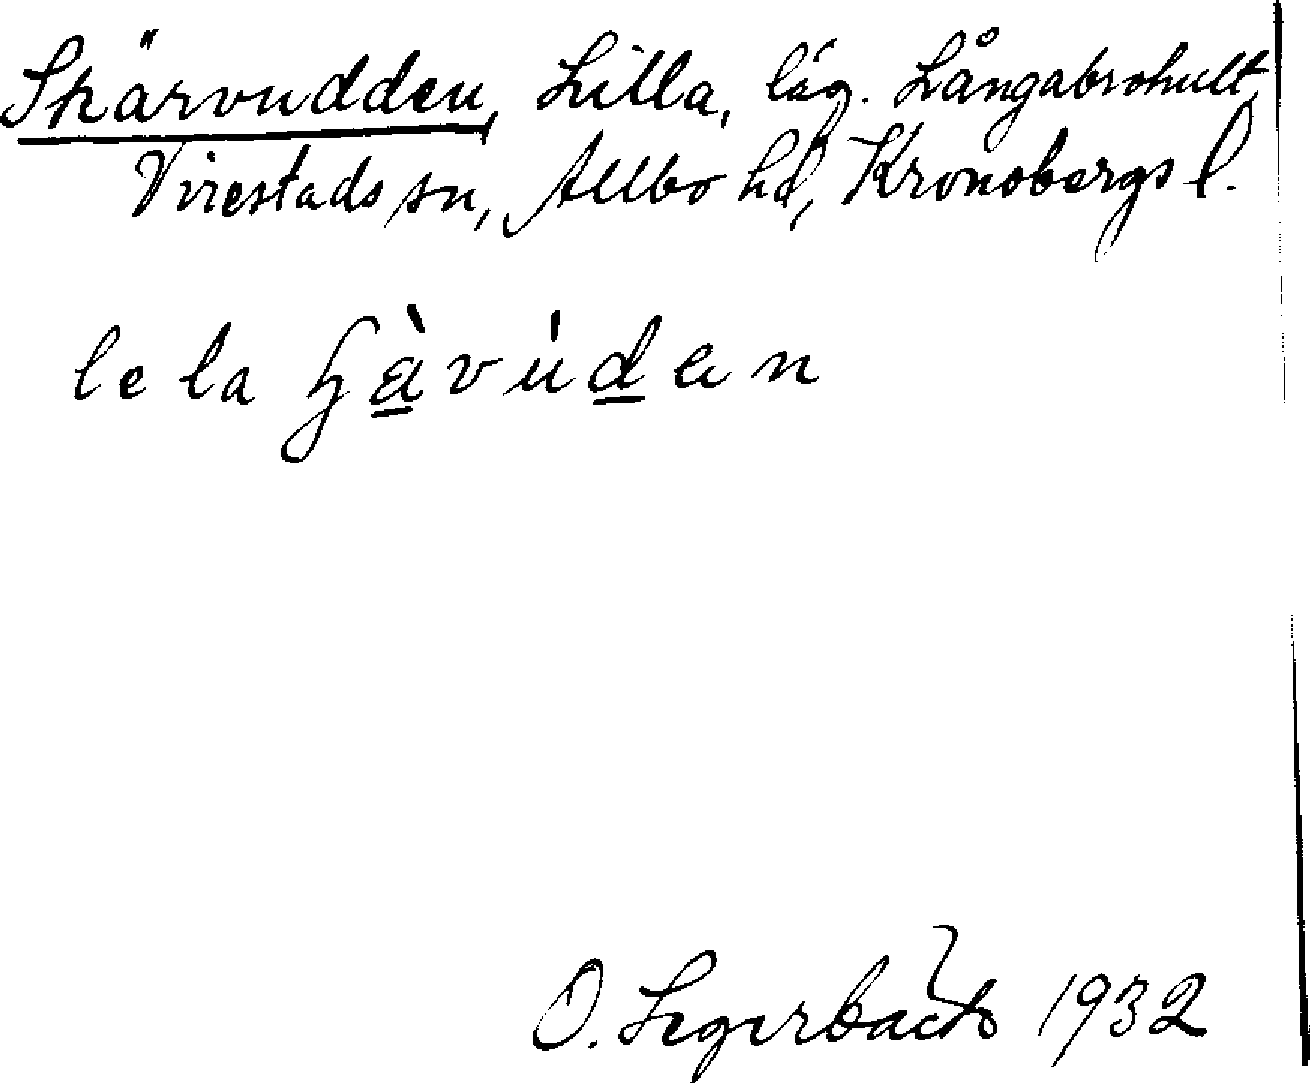 Skärvudden, Lilla, läg. Långabrohult,
Virestads sn, Allbo hd, Kronobergs l.
le la ɧàvúden
O. Segerbäck 1932